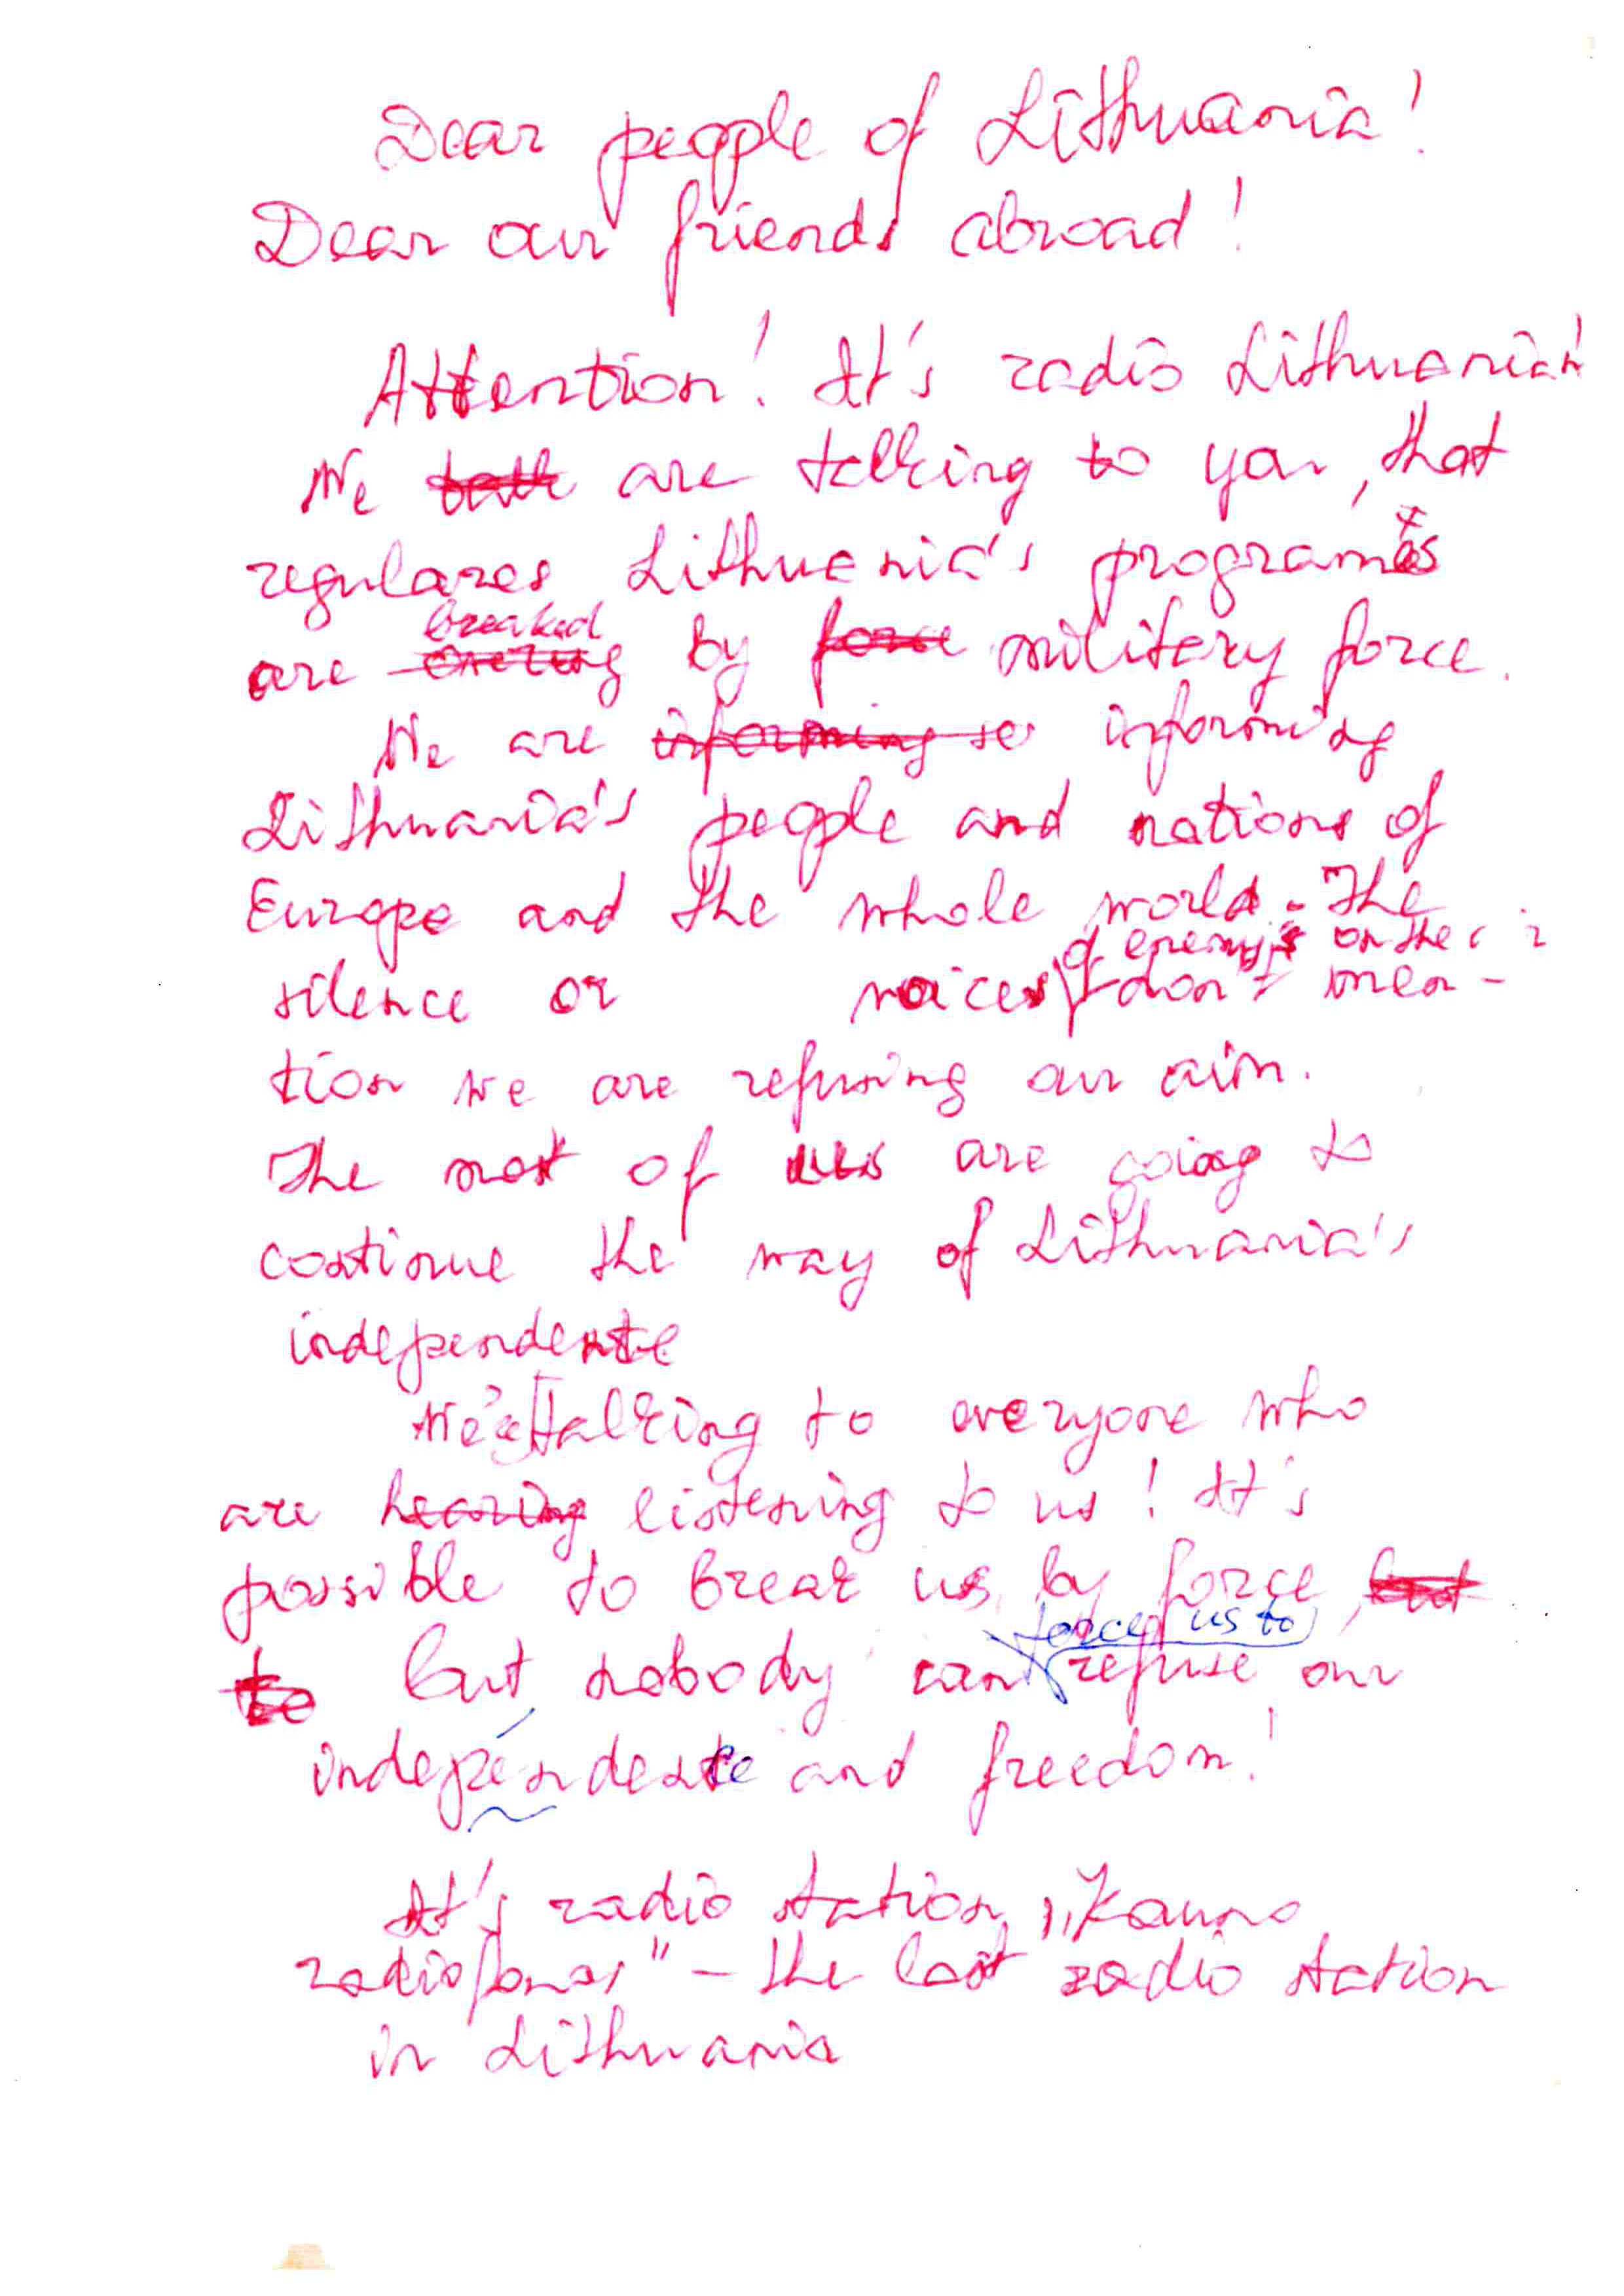 Dear people of Lithuania!
Dear our friends abroad!
Attention! It's radio Lithuania!
We are talking to you, that
regulares Lithuania's programs
breaked
are by military force.
We are informing
Lithuania's people and nations of
Europe and the whole world. The
of enemy's on the
silence or voices don't men-
tion we are refusing our aim.
The most of us are going to
continue the way of Lithuania's
independente
We're talking to everyone who
are listening to us! It's
possible to break us by force,
force us to
but nobody can refuse our
independence and freedom!
It's radio station „Kauno
radiofonas" – the last radio station
in Lithuania